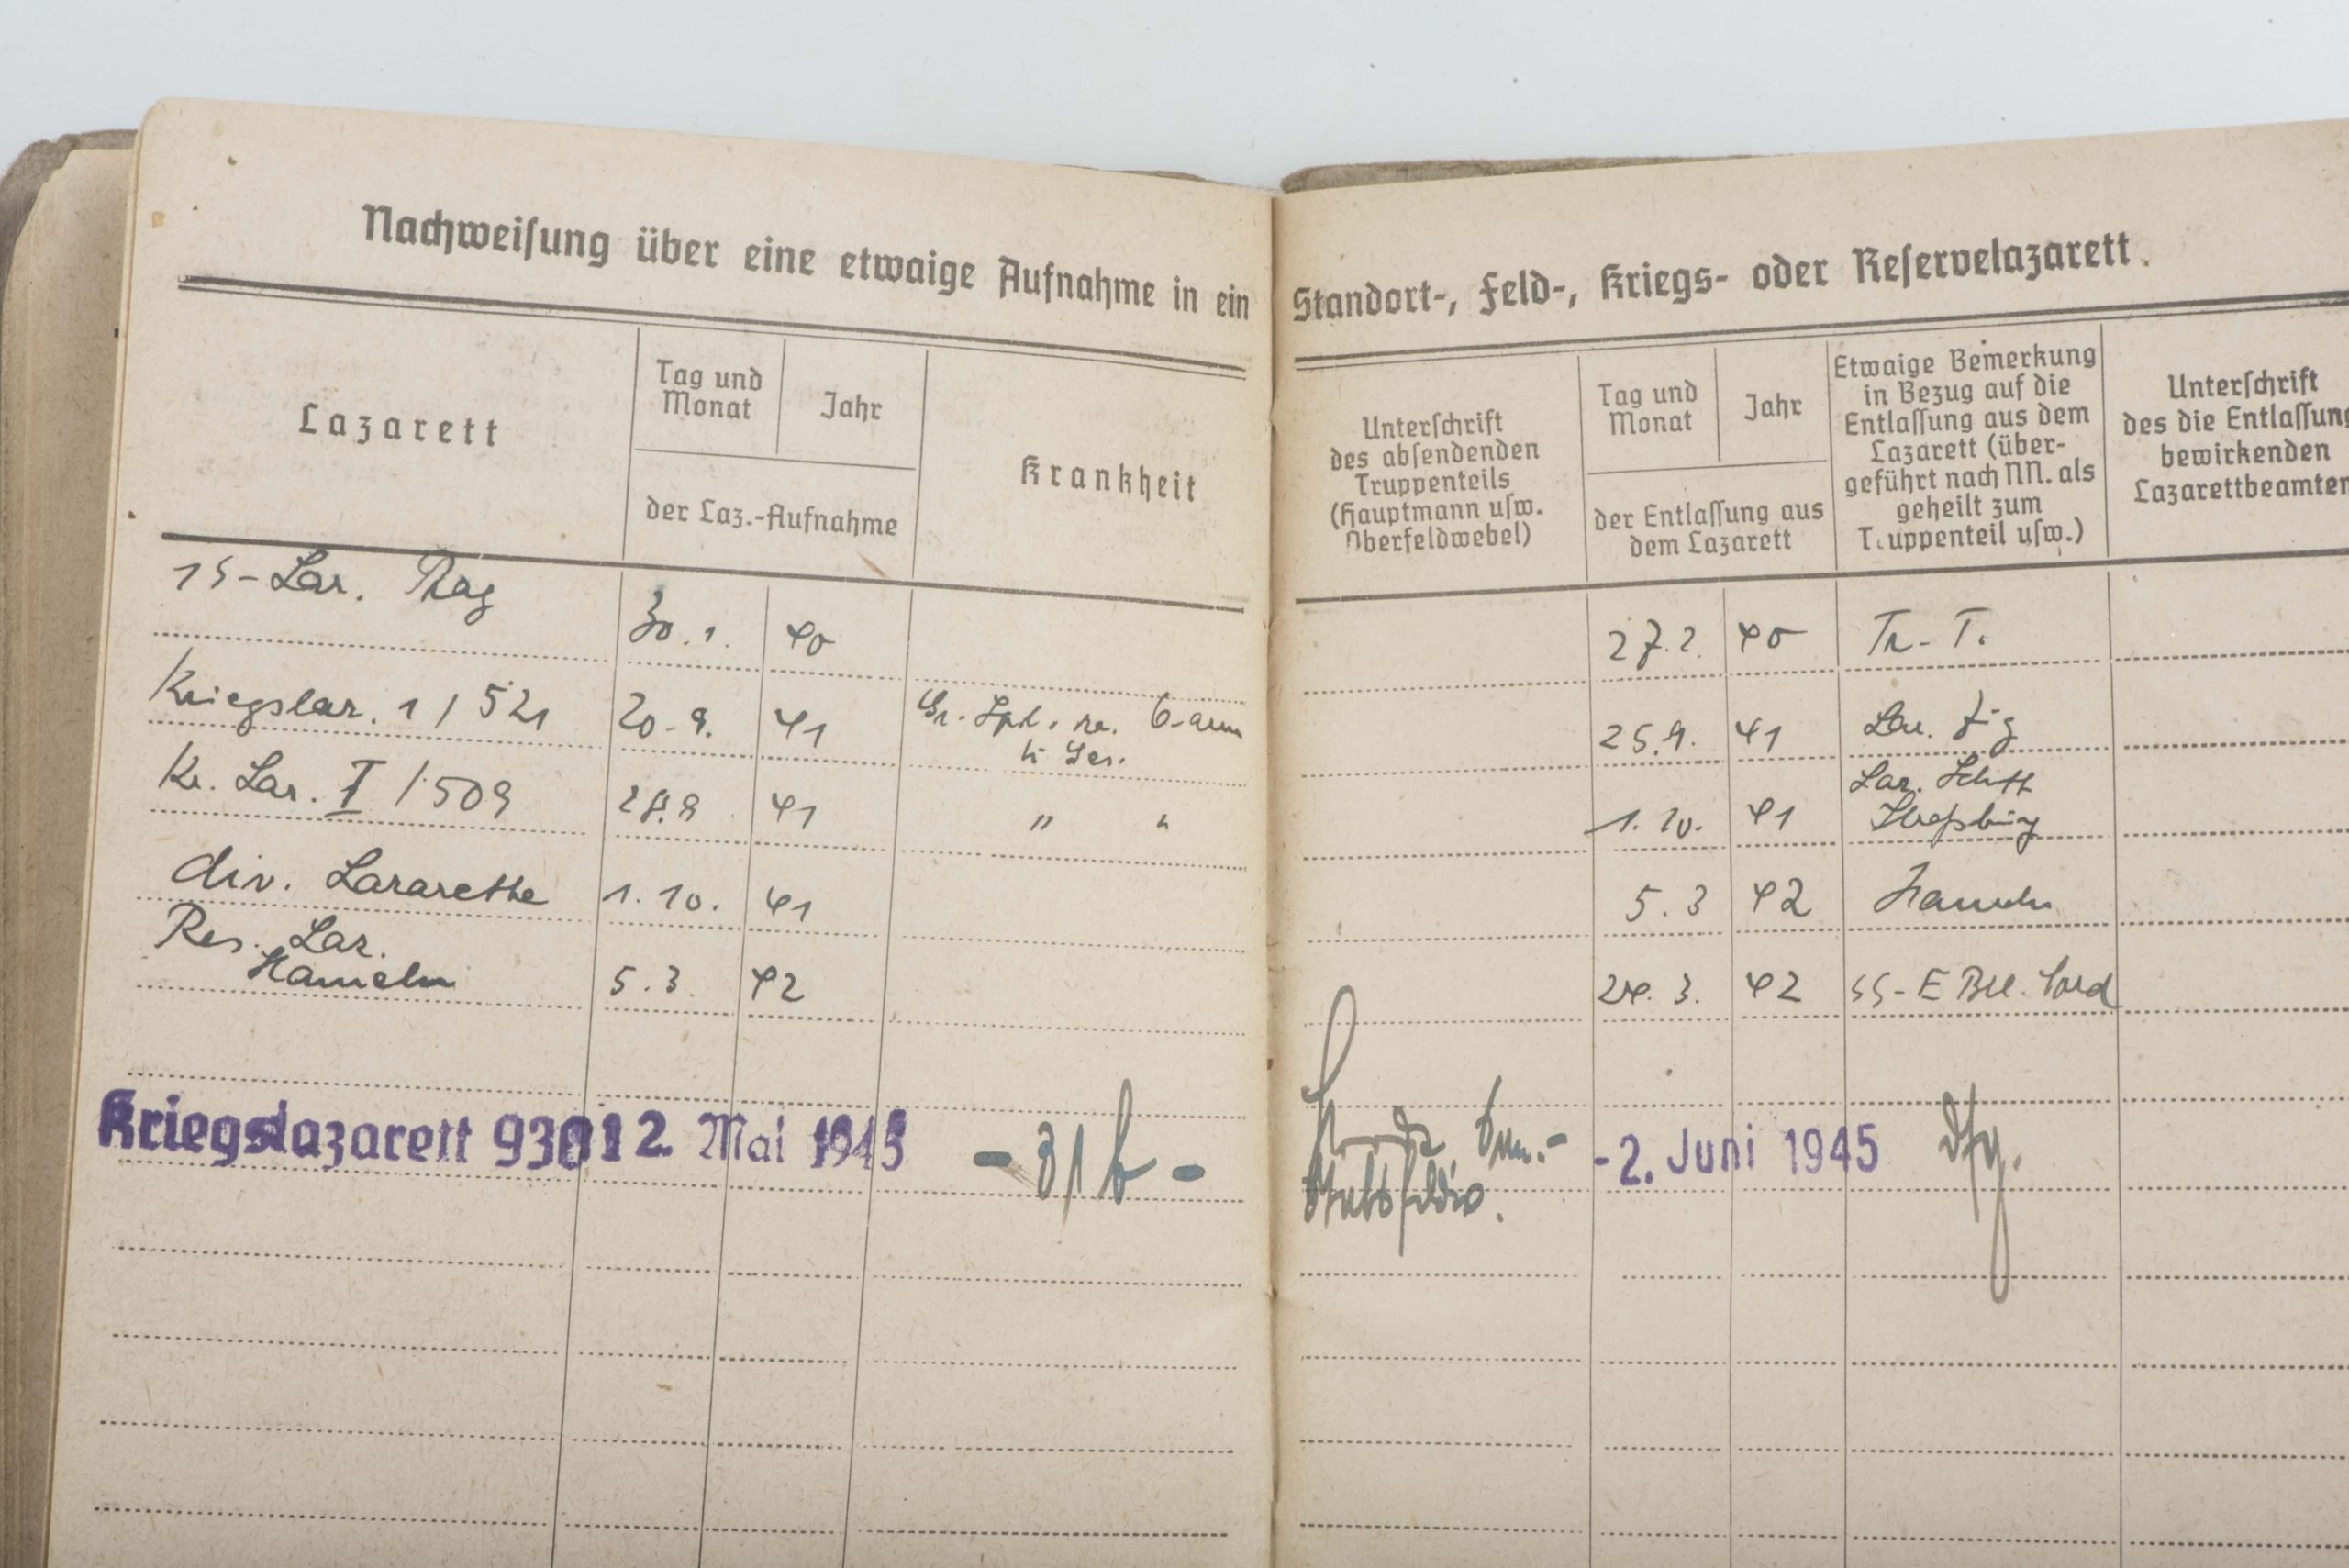 Nachweisung über eine etwaige Aufnahme in ein Standort-, Feld-, Kriegs- oder Reservelazarett.
Lazarett
Tag und
Monat
Jahr
der Laz.-Aufnahme
Krankheit
Unterschrift
des absendenden
Truppenteils
(Hauptmann usw.
Oberfeldwebel)
Tag und
Monat
Jahr
der Entlassung aus
dem Lazarett
Etwaige Bemerkung
in Bezug auf die
Entlassung aus dem
Lazarett (über-
geführt nach NN. als
geheilt zum
Truppenteil usw.)
Unterschrift
des die Entlassung
bewirkenden
Lazarettbeamten
SS-Laz. Prag 30.1. 40 27.2. 40 Tr.-T.
Kriegslaz. 1/521 20.9. 41 Gr. Spl. re. 25.9. 41 Laz. Zug
Kr. Laz. I/509 28.9 41 " " 1.10. 41 Laz.
div. Lazarette 1.10. 41 5.3 42 Hameln
Res. Laz.
Hameln 5.3. 42 24.3. 42 SS-E Btl. Nord
Kriegslazarett 930 12. Mai 1945 -31b- -2. Juni 1945 dfg.